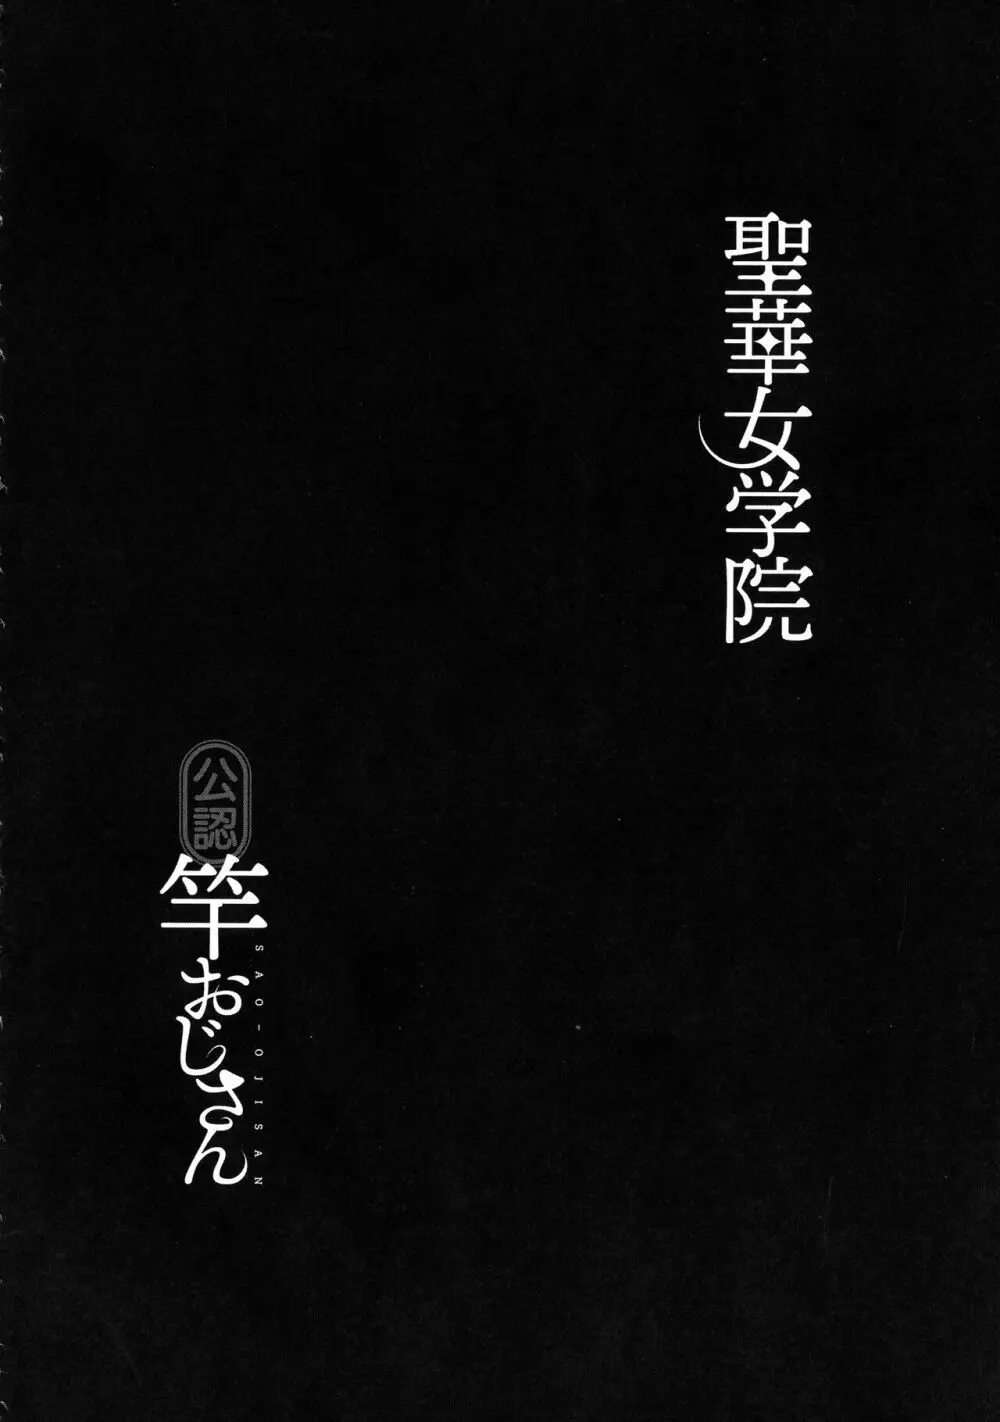 聖華女学院
公認
竿おじさん
SAO-OJISAN